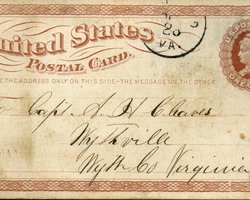 United States
POSTAL CARD.
WRITE THE ADDRESS ONLY ON THIS SIDE—THE MESSAGE ON THE OTHER
20
VA.
Capt. A. H. Chaves
Wytheville
Wythe Co Virginia